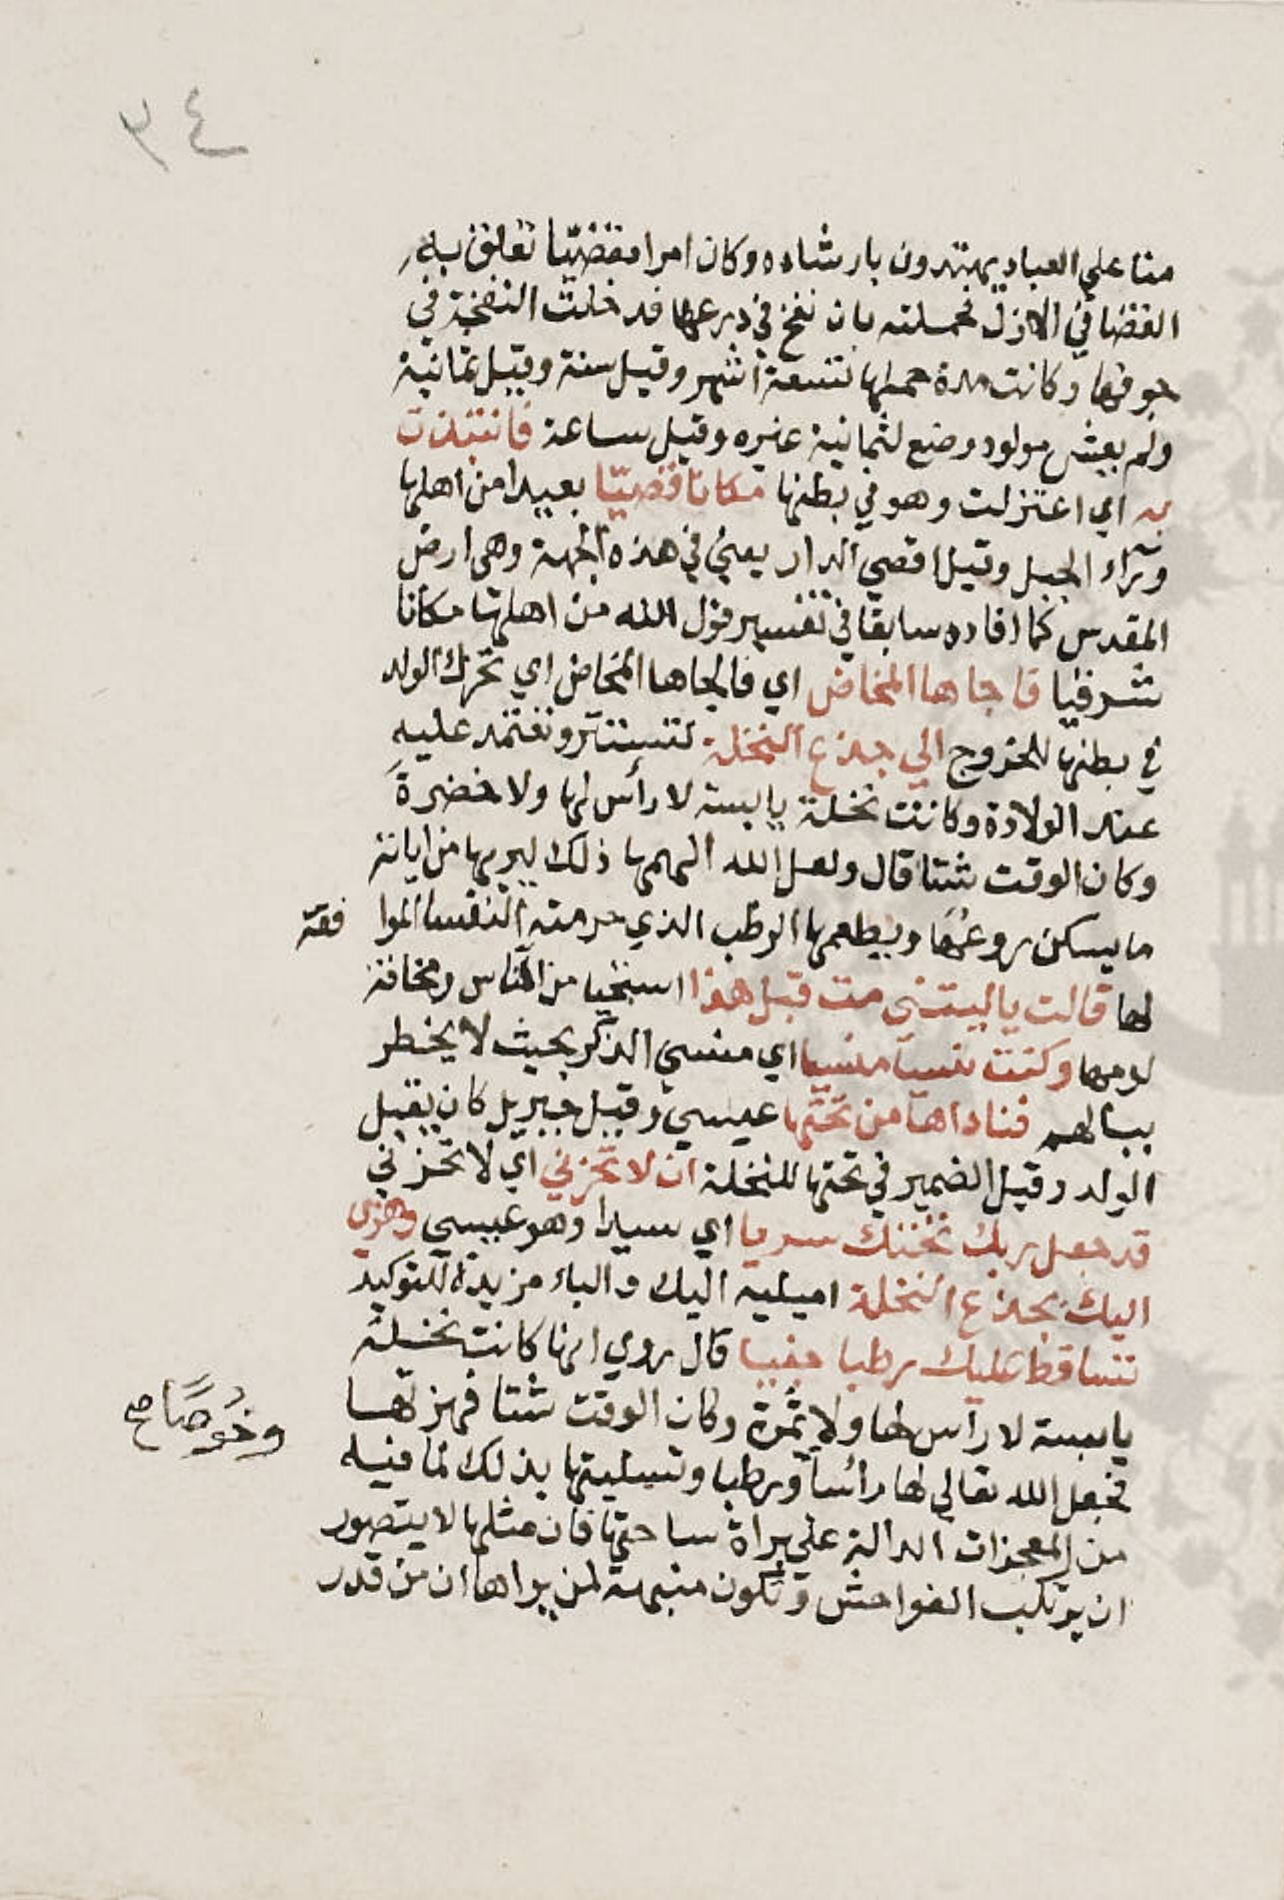 ٣٤
منا علي العباد يهتدون بارشاده وكان امرا مقضيّا تعلق به
القضا في الازل فحملته بان نفخ في درعها فدخلت النفخة في
جوفها وكانت مدة حملها تسعة اشهر وقيل ستة وقيل ثمانية
ولم يعش مولود وضع لثمانية غيره وقيل ساعة فانتبذت
به اي اعتزلت وهو في بطنها مكانا قصيّا بعيدا من اهلها
ورآء الجبل وقيل اقصي الدار يعني في هذه الجهة وهي ارض
المقدس كما افاده سابقا في تفسير قول الله من اهلها مكانا
شرقيا فاجاها المخاض اي فالجاها المخاض اي تحرك الولد
في بطنها للخروج الي جذع النخلة لتستتر وتعتمد عليه
عند الولادة وكانت نخلة يابسة لا رأس لها ولا خضرة
وكان الوقت شتا قال ولعل الله الهمها ذلك ليريها من اياته
ما يسكن روعها ويطعمها الرطب الذي حرمته النفسا الموا
فقة
لها قالت ياليتني مت قبل هذا استحيا من الناس ومخافة
لومها وكنت نسيا منسيا اي منسي الذكر بحيث لا يخطر
ببالهم فناداها من تحتها عيسي وقيل جبريل كان يقبل
الولد وقيل الضمير في تحتها للنخلة ان لا تحزني اي لا تحزني
قد جعل ربك تحتك سريا اي سيدا وهو عيسي وهزي
اليك بجذع النخلة اميليه اليك والباء مزيدة للتوكيد
تساقط عليك رطبا جنيا قال روي انها كانت نخلة
يابسة لا رأس لها ولا ثمرة وكان الوقت شتا فهزتها
وخُوصًا صح
فجعل الله تعالي لها رائسا ورطبا وتسليتها بذلك لما فيه
من المعجزات الدالة علي براة ساحتها فان مثلها لا يتصور
ان يرتكب الفواحش وتكون منبهة لمن يراها ان من قدر